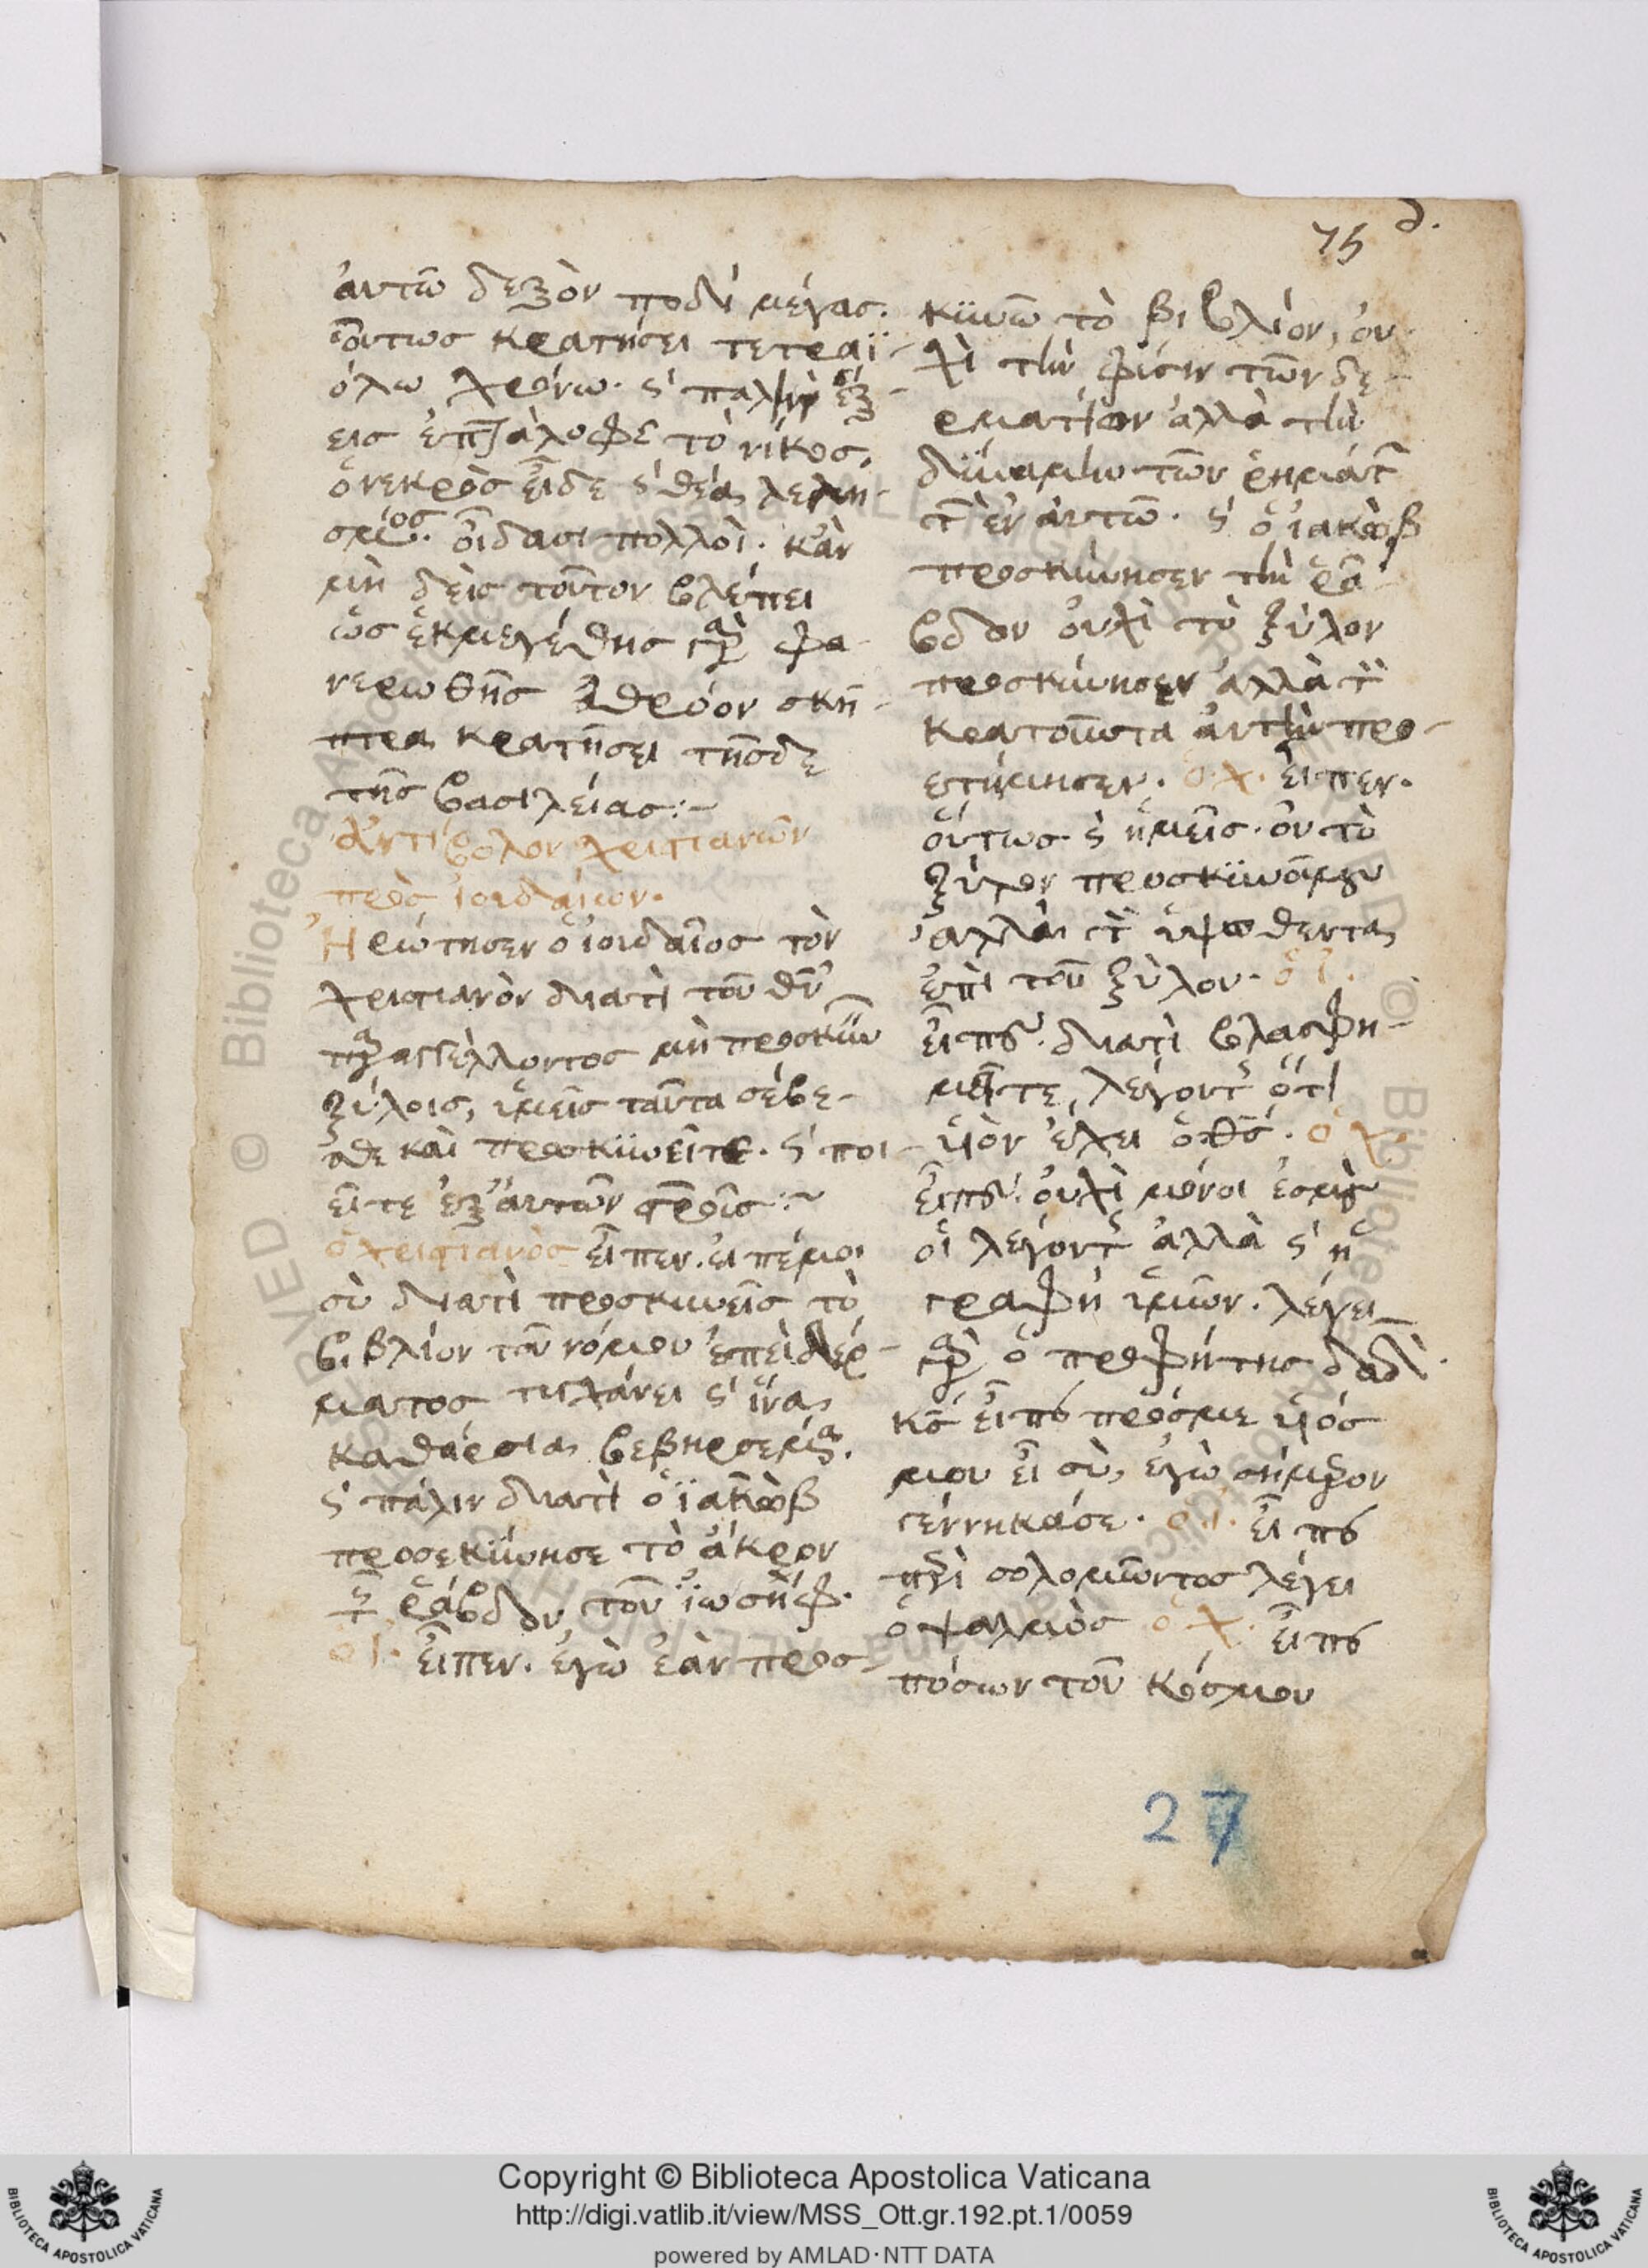 75 δ.
ἀυτῶ δεξὸν ποδὶ μέγας.
οὕτως κρατήσει τετραϊ-
όλω χρόνω. ϛ πάλιν ἑξ-
εις ἑπτάλοφε τὸ νίκος,
ὁ νεκρὸς εἶδε ϛ θέα λελη-
σμένος. οἴδασι πολλοὶ. κἂν
μὴ δεὶς τοῦτον βλέπει
ὡς ἐκ μεγέθης γὰρ φα-
νερωθῆς ἄθρόον σκῆ-
πτρα κρατῆσει τῆσδε
τῆς βασιλείας:-
ἀντίβολον χριστιανῶν
πρὸς ἰουδαίων.
Ἠρώτησεν ὁ ἰουδαῖος τὸν
χριστιανὸν διατὶ τοῦ θῦ
παραγγέλλοντος μὴ προσκυν
ξύλοις, ὑμεῖς ταῦτα σέβε-
σθε καὶ προσκυνεῖτε. ϛ ποι-
εῖτε ἐξ αυτῶν στροῖς:~
ὁ χριστιανὸς εἶπεν. εἰπέμοι
σὺ διατὶ προσκυνεῖς τὸ
βιβλίον τοῦ νόμου ἐπεὶ δέρ-
ματος τυχάνει ϛ ἵνα
καθάρσια βεβηρσεμένα.
ϛ πάλιν διατὶ ὁ ϊακὼβ
προσεκύνησε τὸ ἄκρον
τῆς ῥάβδου τοῦ ϊωσὴφ.
ὁ ἰ. εἶπεν. ἐγὼ ἐὰν προσ-
κυνῶ τὸ βιβλίον, ὀυ-
χὶ τὴν φύσιν τῶν δε-
ρματίων ἀλλὰ τὴν
δύναμιν τῶν ῥημάτ
τῶν ἐν ἀυτῶ. ϛ ὁ ἰακὼβ
προσκύνησεν τὴν ῥά-
βδον ὀυχὶ τὸ ξύλον
προσκύνησεν ἀλλὰ τὸν
κρατοῦντα ἀυτὴν προ-
ετίμησεν. ὁ. χ. εἶπεν.
οὕτως ϛ ἡμεῖς. ὀυ τὸ
ξύλον προσκυνοῦμεν
ἀλλὰ τὸν ὑψωθεντα
ἐπὶ τοῦ ξύλου. ὁ ἰ.
εἶπεν. διατὶ βλασφη-
μεῖτε, λέγοντες ὅτι
υἱὸν ἔχει ὁ θς. ὁ χ.
εἶπεν. ὀυχὶ μόνοι ἐσμὲν
οἱ λέγοντες ἀλλὰ ϛ ἡ
γραφὴ ὑμῶν. λέγει
γὰρ ὁ προφήτης δαδ
κς εἶπε πρόσμε υἱός
μου εἶ σὺ, ἐγὼ σήμερον
γέννηκάσε. ὁ ἰ. εἶπε
περὶ σολομῶντος λέγει
ὁ ψαλμὸς ὁ χ. εἶπε
πόσων τοῦ κόσμου
27
Copyright © Biblioteca Apostolica Vaticana
http://digi.vatlib.it/view/MSS_Ott.gr.192.pt.1/0059
powered by AMLAD·NTT DATA
BIBLIOTECA APOSTOLICA VATICANA
BIBLIOTECA APOSTOLICA VATICANA